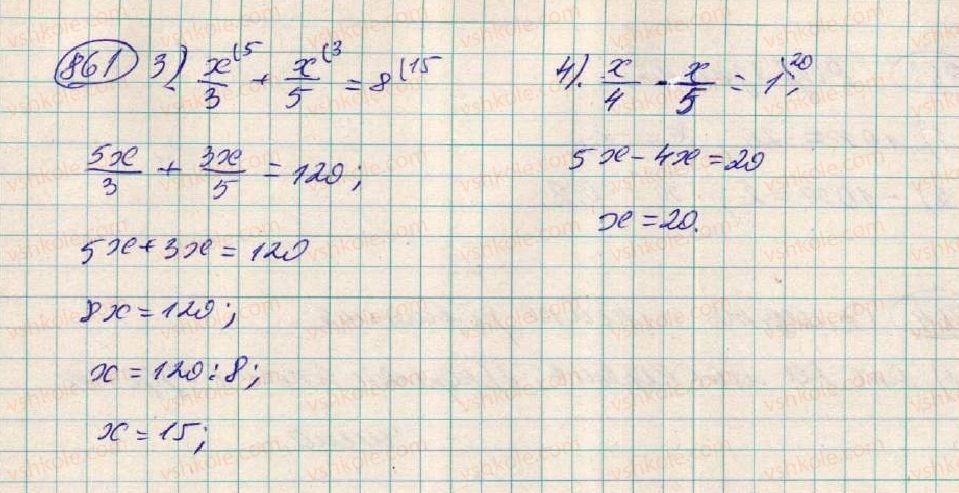 861 3) x/3 (5 + x/5 (3 = 8 (15
5x/3 + 3x/5 = 120;
5x + 3x = 120
8x = 120;
x = 120 : 8;
x = 15;
4). x/4 - x/5 = 1 )20;
5x - 4x = 20
x = 20.
vshkole.com